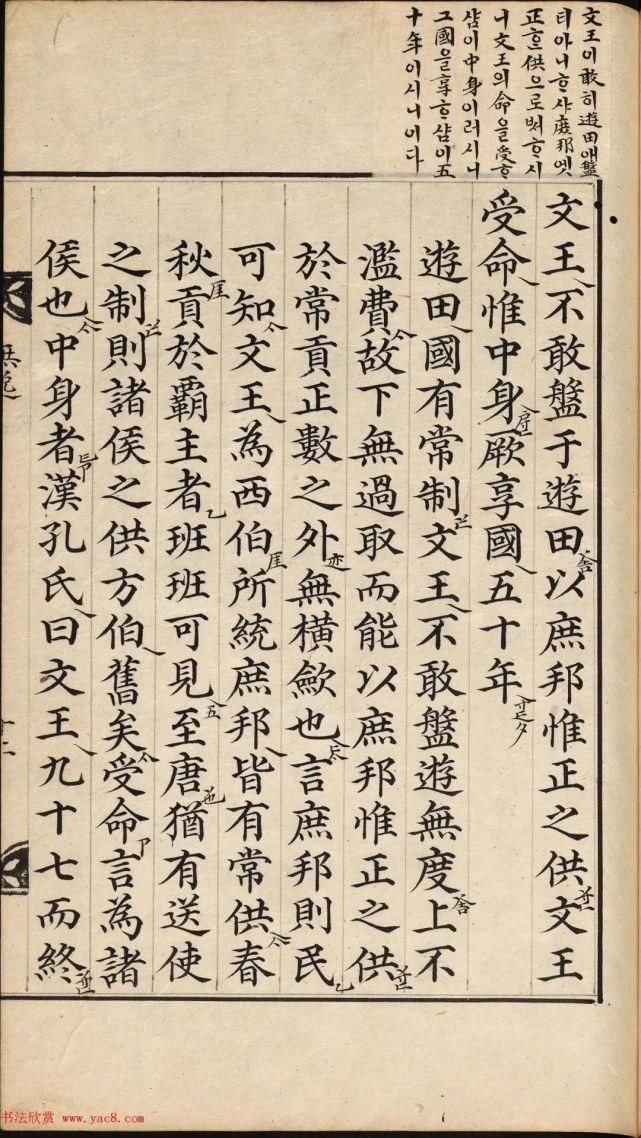 文王이敢히遊田애盤
티아니ᄒᆞ샤庶邦엣
正ᄒᆞᆫ供으로ᄡᅥᄒᆞ시
니文王의命을受ᄒᆞ
샴이中身이러시니
그國을享ᄒᆞ샴이五
十年이시니이다
文王不敢盤于遊田以庶邦惟正之供文王
受命惟中身厥享國五十年
遊田國有常制文王不敢盤遊無度上不
濫費故下無過取而能以庶邦惟正之供
於常貢正數之外無橫歛也言庶邦則民
可知文王為西伯所統庶邦皆有常供春
秋貢於霸主者班班可見至唐猶有送使
之制則諸侯之供方伯舊矣受命言為諸
侯也中身者漢孔氏曰文王九十七而終
無逸
十二
书法欣赏 www.yac8.com